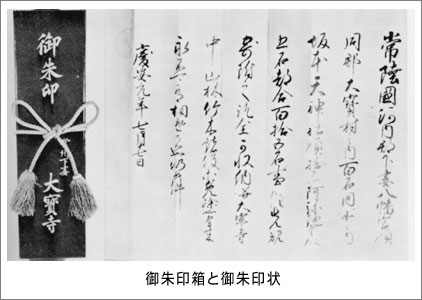 常陸國河内郡下妻八幡宮領
同郡大寶村内百石同所之内
坂本天神社領
五石都合百拾五石事任先規
寄附之訖全可収納并大寶寺
中山林竹木諸役等免除
永不可有相違者也仍如件
慶安元年七月
御朱印
大寶寺
御朱印箱と御朱印状